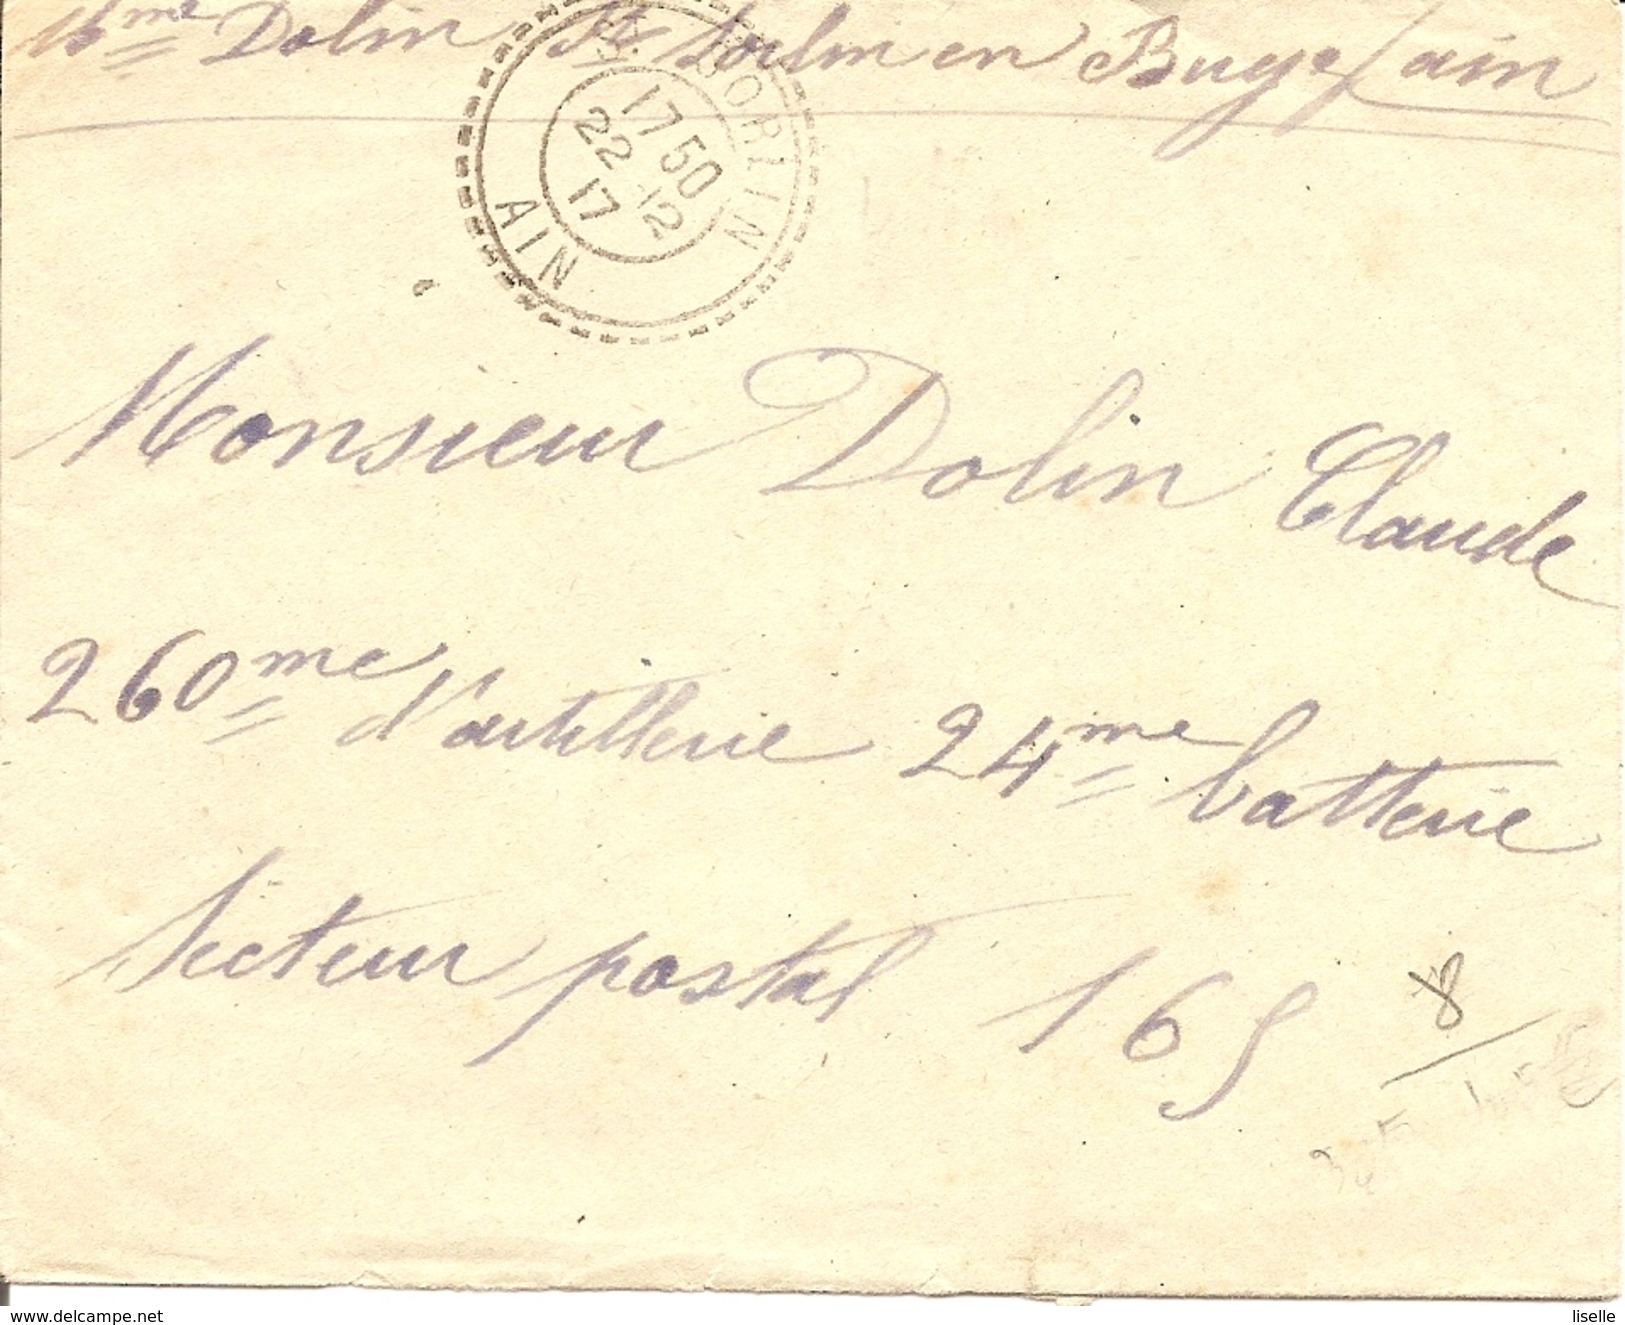 Mme Dolin St Sorlin en Bugey ain
ST SORLIN
17 50
22 -12
17
AIN
Monsieur Dolin Claude
260me d'artillerie 24me batterie
Secteur postal 165
8
liselle